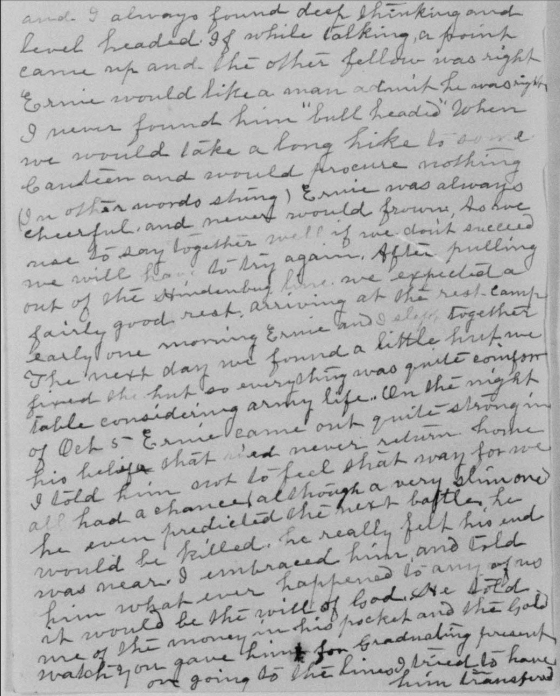 and I always found deep thinking and
level headed. If while talking, a point
came up and the other fellow was right
Ernie would like a man admit he was right
I never found him "bull headed" When
we would take a long hike to some
Canteen and would procure nothing
(In other words stung) Ernie was always
cheerful, and never would frown, As we
use to say together well if we dont succeed
we will have to try again. After pulling
out of the Hindenbug line, we expected a
fairly good rest, arriving at the rest camp
early one morning Ernie and I slept together
The next day we found a little hut, we
fixed the hut so everything was quite comfor
table considering army life.. On the night
of Oct 5 Ernie came out quite strong in
his belief that he'd never return home
I told him not to feel that way for we
all had a chance (although a very slim one)
he even predicted the next battle, he
would be killed, he really felt his end
was near. I embraced him, and told
him what ever happened to any of us
it would be the will of God. He told
me of the money in his pocket and the Gold
watch you gave him for Graduating present
on going to the lines, I tried to have
him transfered